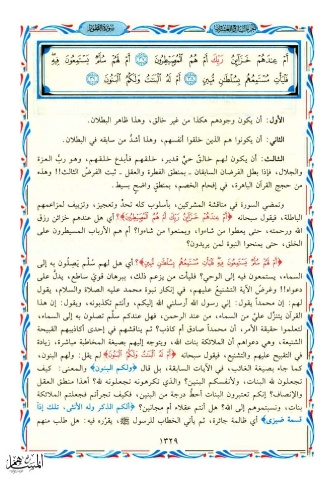 سورة الطور
أَمْ عِندَهُمْ خَزَآئِنُ رَبِّكَ أَمْ هُمُ ٱلْمُصَۜيْطِرُونَ ﴿٣٧﴾ أَمْ لَهُمْ سُلَّمٌ يَسْتَمِعُونَ فِيهِ
فَلْيَأْتِ مُسْتَمِعُهُم بِسُلْطَٰنٍ مُّبِينٍ ﴿٣٨﴾ أَمْ لَهُ ٱلْبَنَٰتُ وَلَكُمُ ٱلْبَنُونَ ﴿٣٩﴾
الأول: أن يكون وجودهم هكذا من غير خالق، وهذا ظاهر البطلان.
الثاني: أن يكونوا هم الذين خلقوا أنفسهم، وهذا أشدُّ من سابقه في البطلان.
الثالث: أن يكون لهم خالق حيٌّ قدير، خلقهم فأبدع خلقهم، وهو ربُّ العزة
والجلال، فإذا بطل الفرضان السابقان - بمنطق الفطرة والعقل - ثبت الفرضُ الثالث!! وهذه
من حجج القرآن الباهرة، في إفحام الخصم، بمنطقٍ واضحٍ بسيط.
وتمضي السورة في مناقشة المشركين، بأسلوب كله تحدٍّ وتعجيز، وتزييف لمزاعمهم
الباطلة، فيقول سبحانه ﴿أَمْ عِندَهُمْ خَزَآئِنُ رَبِّكَ أَمْ هُمُ ٱلْمُصَۜيْطِرُونَ﴾؟ أي هل عندهم خزائن رزق
الله ورحمته، حتى يعطوا من شاءوا، ويمنعوا من شاءوا؟ أم هم الأرباب المسيطرون على
الخلق، حتى يمنحوا النبوة لمن يريدون؟
﴿أَمْ لَهُمْ سُلَّمٌ يَسْتَمِعُونَ فِيهِ فَلْيَأْتِ مُسْتَمِعُهُم بِسُلْطَٰنٍ مُّبِينٍ﴾؟ أي هل لهم سلَّم يَصِلُون به إلى
السماء، يستمعون فيه إلى الوحي؟ فليأت من يزعم ذلك، ببرهان قويّ ساطع، يدلُّ على
دعواه!! وغرضُ الآية التشنيعُ عليهم، في إنكار نبوة محمد عليه الصلاة والسلام، يقول
لهم: إن محمداً يقول: إني رسول الله أرسلني الله إليكم، وأنتم تكذبونه، ويقول: إن هذا
القرآن يتنزَّل عليَّ من السماء، من عند الرحمن، فهل عندكم سلَّم تصلون به إلى السماء،
لتعلموا حقيقة الأمر، أن محمداً صادق أم كاذب؟ ثم يناقشهم في إحدى أكاذيبهم القبيحة
الشنيعة، وهي دعواهم أن الملائكة بنات الله، ويتوجه إليهم بصيغة المخاطبة مباشرة، زيادة
في التقبيح عليهم والتشنيع، فيقول سبحانه ﴿أَمْ لَهُ ٱلْبَنَٰتُ وَلَكُمُ ٱلْبَنُونَ﴾ لم يقل: ولهم البنون،
كما جاء بصيغة الغائب، في الآيات السابقة، بل قال ﴿ولكم البنون﴾ والمعنى: كيف
تجعلون لله البنات، ولأنفسكم البنين؟ والذي تكرهونه تجعلونه لله؟ أهذا منطق العقل
والإنصاف؟ إنكم تعتبرون البنات أحطَّ درجة من البنين، فكيف تجرأتم فجعلتم الملائكة
بنات، ونسبتموهم إلى الله؟ هل أنتم عقلاء أم مجانين؟ ﴿ألكم الذكر وله الأنثى، تلك إذاً
قسمة ضيزى﴾ أي ظالمة جائرة، ثم يأتي الخطاب للرسول ﷺ، يقرّره فيه: هل طلب منهم
١٣٢٩